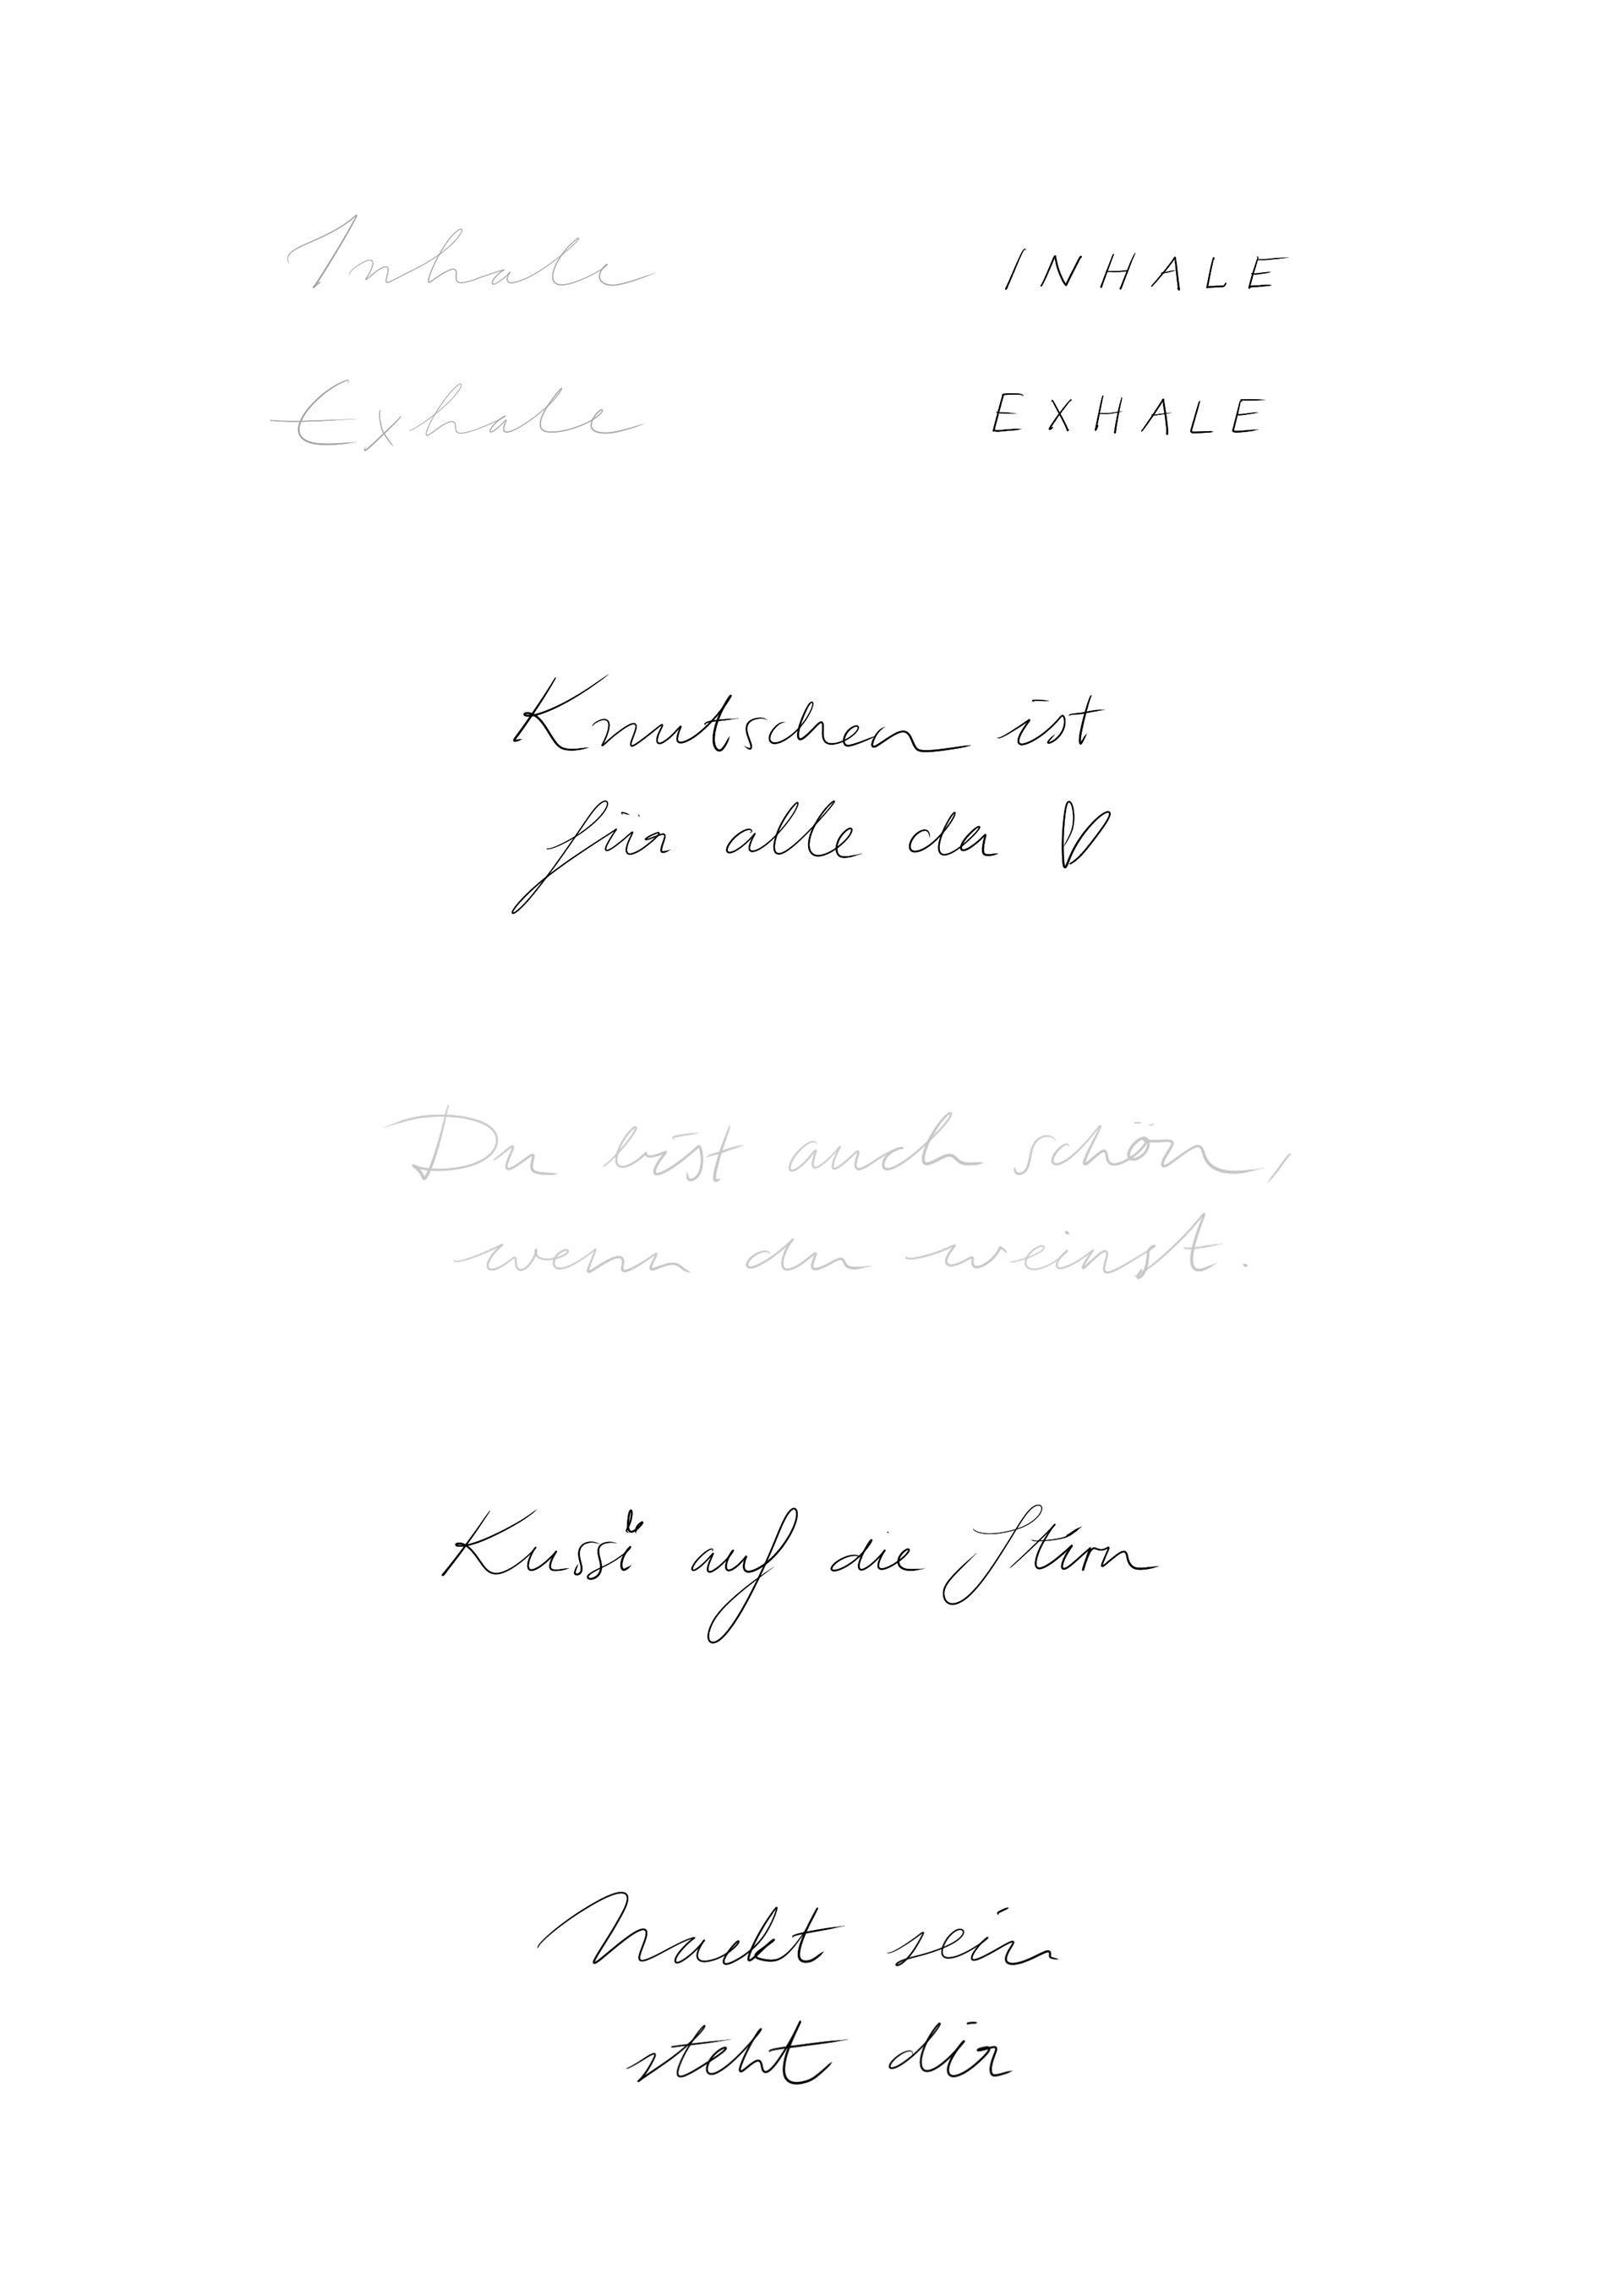 Inhale INHALE
Exhale EXHALE
Knutschen ist
für alle da ♡
Du bist auch schön,
wenn du weinst.
Kussi auf die Stirn
Nackt sein
steht dir